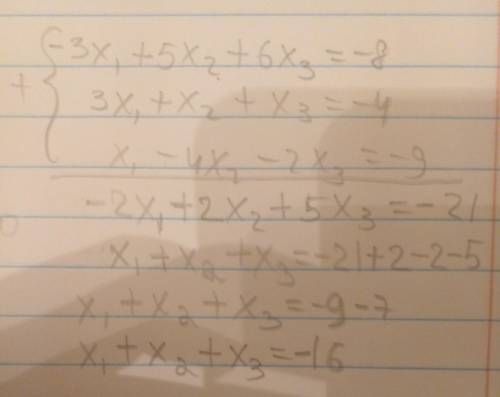 -3x₁+5x₂+6x₃=-8
+ 3x₁+x₂+x₃=-4
x₁-4x₂-2x₃=-9
-2x₁+2x₂+5x₃=-21
x₁+x₂+x₃=-21+2-2-5
x₁+x₂+x₃=-9-7
x₁+x₂+x₃=-16